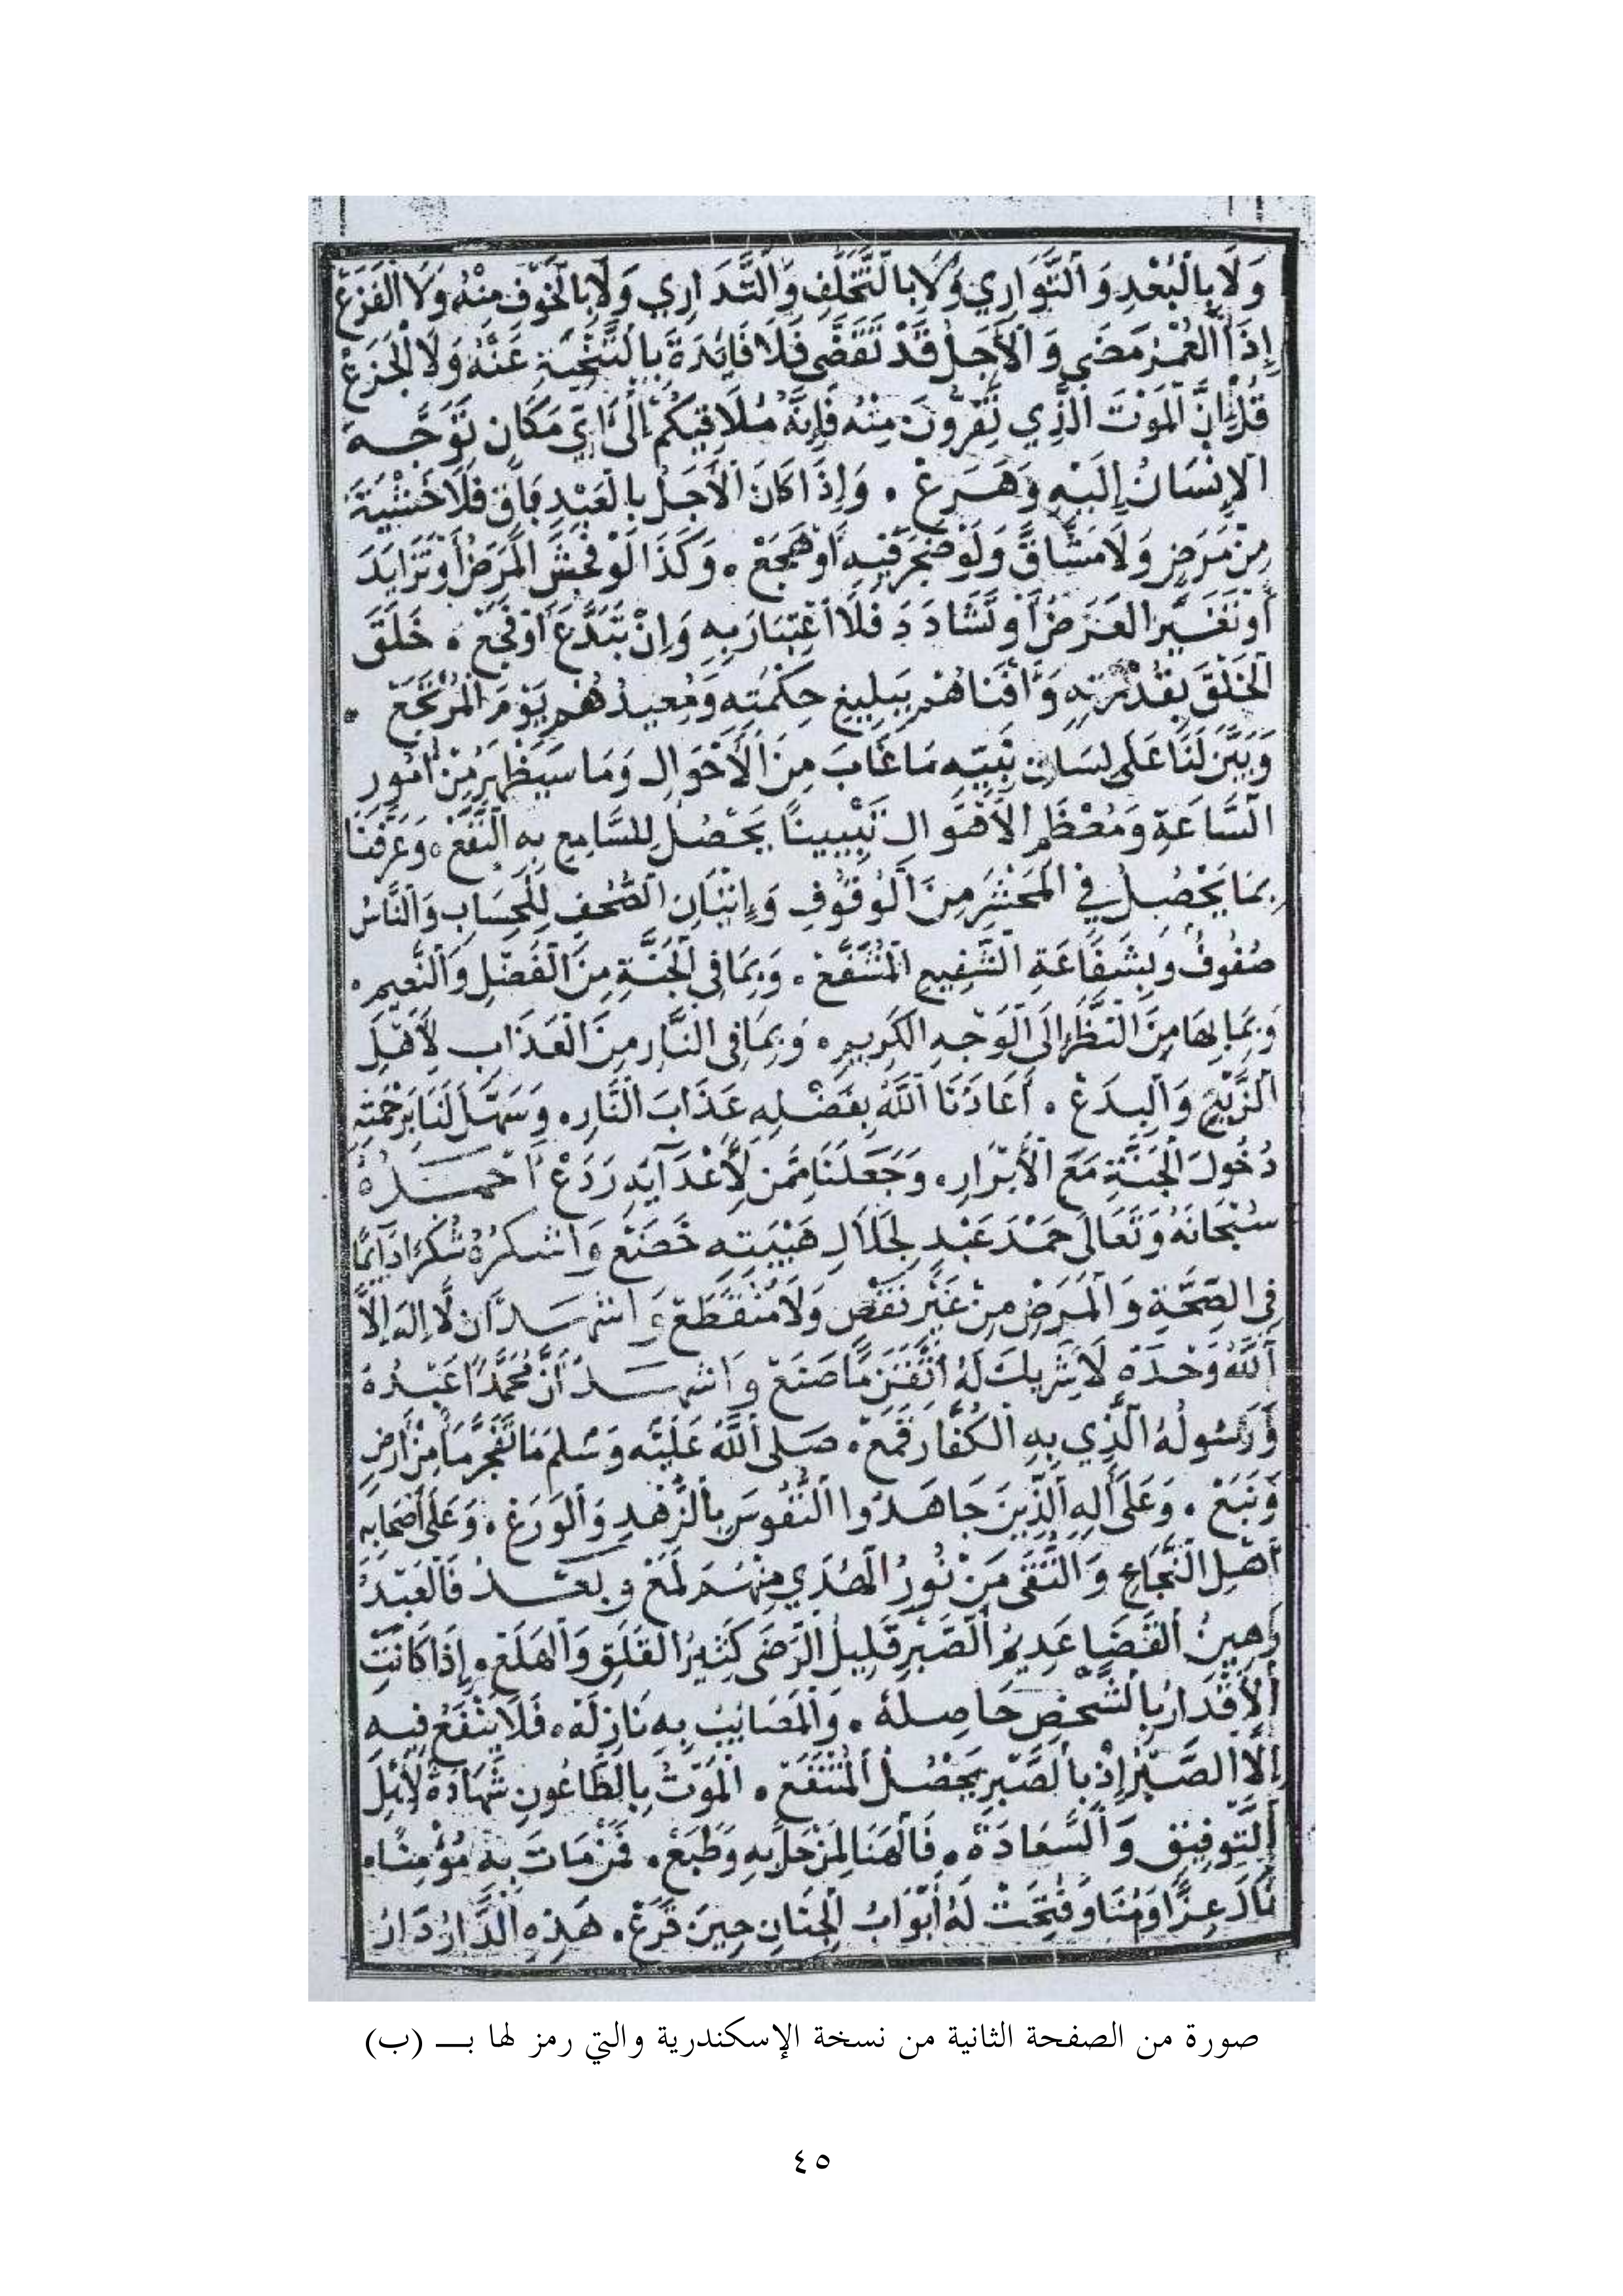 وَلَا بِالْبُعْدِ وَالتَّوَارِي وَلَا بِالتَّخَلُّفِ وَالتَّدَارِي وَلَا بِالْخَوْفِ مِنْهُ وَلَا الْفَزَعْ
إِذَا الْعُمْرُ مَضَى وَالْأَجَلُ قَدْ تَقَضَّى فَلَا فَائِدَةَ بِالتَّنَحِّيَةِ عَنْهُ وَلَا الْجَزَعْ
قُلْ إِنَّ الْمَوْتَ الَّذِي تَفِرُّونَ مِنْهُ فَإِنَّهُ مُلَاقِيكُمْ إِلَى أَيِّ مَكَانٍ تَوَجَّهَ
الْإِنْسَانُ إِلَيْهِ وَهَرَعْ ۰ وَإِذَا كَانَ الْأَجَلُ بِالْعَبْدِ بَاقٍ فَلَا خَشْيَةَ
مِنْ مَرَضٍ وَلَا مَشَاقَّ وَلَوْ ضَجَرَ فِيهِ أَوْ هَجَعْ ۰ وَكَذَا لَوْ فَحَشَ الْمَرَضُ أَوْ تَزَايَدَ
أَوْ تَغَيَّرَ الْعَرَضُ أَوْ تَشَادَدَ فَلَا اعْتِبَارَ بِهِ وَإِنْ تَبَدَّعَ أَوْ فَجَعْ ۰ خَلَقَ
الْخَلْقَ بِقُدْرَتِهِ وَأَفْنَاهُمْ بِبَلِيغِ حِكْمَتِهِ وَمُعِيدُهُمْ يَوْمَ الْمَرْجَعْ ۰
وَبَيَّنَ لَنَا عَلَى لِسَانِ نَبِيِّهِ مَا غَابَ مِنَ الْأَحْوَالِ وَمَا سَيَظْهَرُ مِنْ أُمُورِ
السَّاعَةِ وَمُعْظَمِ الْأَهْوَالِ تَبْيِينًا يَحْصُلُ لِلسَّامِعِ بِهِ النَّفَعْ ۰ وَعَرَّفَنَا
بِمَا يَحْصُلُ فِي الْمَحْشَرِ مِنَ الْوُقُوفِ وَإِتْيَانِ الصُّحُفِ لِلْحِسَابِ وَالنَّاسُ
صُفُوفٌ وَبِشَفَاعَةِ الشَّفِيعِ الْمُشَفَّعْ ۰ وَبِمَا فِي الْجَنَّةِ مِنَ الْفَضْلِ وَالنَّعِيمِ ۰
وَبِمَا بِهَا مِنَ النَّظَرِ إِلَى الْوَجْهِ الْكَرِيمِ ۰ وَبِمَا فِي النَّارِ مِنَ الْعَذَابِ لِأَهْلِ
الزَّيْغِ وَالْبِدَعْ ۰ أَعَاذَنَا اللهُ بِفَضْلِهِ عَذَابَ النَّارِ ۰ وَسَهَّلَ لَنَا بِرَحْمَتِهِ
دُخُولَ الْجَنَّةِ مَعَ الْأَبْرَارِ ۰ وَجَعَلَنَا مِمَّنْ لِأَعْدَآيِهِ رَدَعْ أَحْمَدُهُ
سُبْحَانَهُ وَتَعَالَى حَمْدَ عَبْدٍ لِجَلَالِ هَيْبَتِهِ خَضَعْ وَأَشْكُرُهُ شُكْرًا دَايِمًا
فِي الصِّحَّةِ وَالْمَرَضِ مِنْ غَيْرِ نَقْصٍ وَلَا مُنْقَطَعْ وَأَشْهَدُ أَن لَّا إِلَهَ إِلَّا
اللهُ وَحْدَهُ لَا شَرِيكَ لَهُ أَتْقَنَ مَا صَنَعْ وَأَشْهَدُ أَنَّ مُحَمَّدًا عَبْدُهُ
وَرَسُولُهُ الَّذِي بِهِ الْكُفَّارَ قَمَعْ ۰ صَلَى اللهُ عَلَيْهِ وَسَلَمَ مَا تَفَجَّرَ مَا مِنْ أَرْضٍ
وَنَبَعْ ۰ وَعَلَى أَلِهِ الَّذِينَ جَاهَدُوا النُّفُوسَ بِالزُّهْدِ وَالْوَرَعْ ۰ وَعَلَى أَصْحَابِهِ
أَهْلِ النَّجَاحِ وَالتُّقَى مَنْ نُورُ الْهُدَي مِنْهُمْ لَمَعْ وَبَعْدُ فَالْعَبْدُ
رَهِينُ الْقَضَا عَدِيمُ الصَّبْرِ قَلِيلُ الرَّضَى كَثِيرُ الْقَلَقِ وَالْهَلَعْ ۰ إِذَا كَانَتِ
الْأَقْدَارُ بِالشَّخْصِ حَاصِلَهْ ۰ وَالْمَصَايِبُ بِهِ نَازِلَهْ ۰ فَلَا يَنْفَعُ فِيهِ
إِلَّا الصَّبْرُ إِذْ بِالصَّبْرِ يَحْصُلُ الْمُنْتَفَعْ ۰ الْمَوْتُ بِالطَّاعُونِ شَهَادَةٌ لِأَهْلِ
التَّوْفِيقِ وَالسَّعَادَةْ ۰ فَالْهَنَا لِمَنْ حَلَّ بِهِ وَطَبَعْ ۰ فَمَنْ مَاتَ بِهِ مُؤْمِنًا ۰
نَالَ عِزًّا وَمُنًا وَفُتِحَتْ لَهُ أَبْوَابُ الْجِنَانِ حِينَ قَرَعْ ۰ هَذِهِ الدَّارُ دَارُ
صورة من الصفحة الثانية من نسخة الإسكندرية والتي رمز لها بـــ (ب)
٤٥